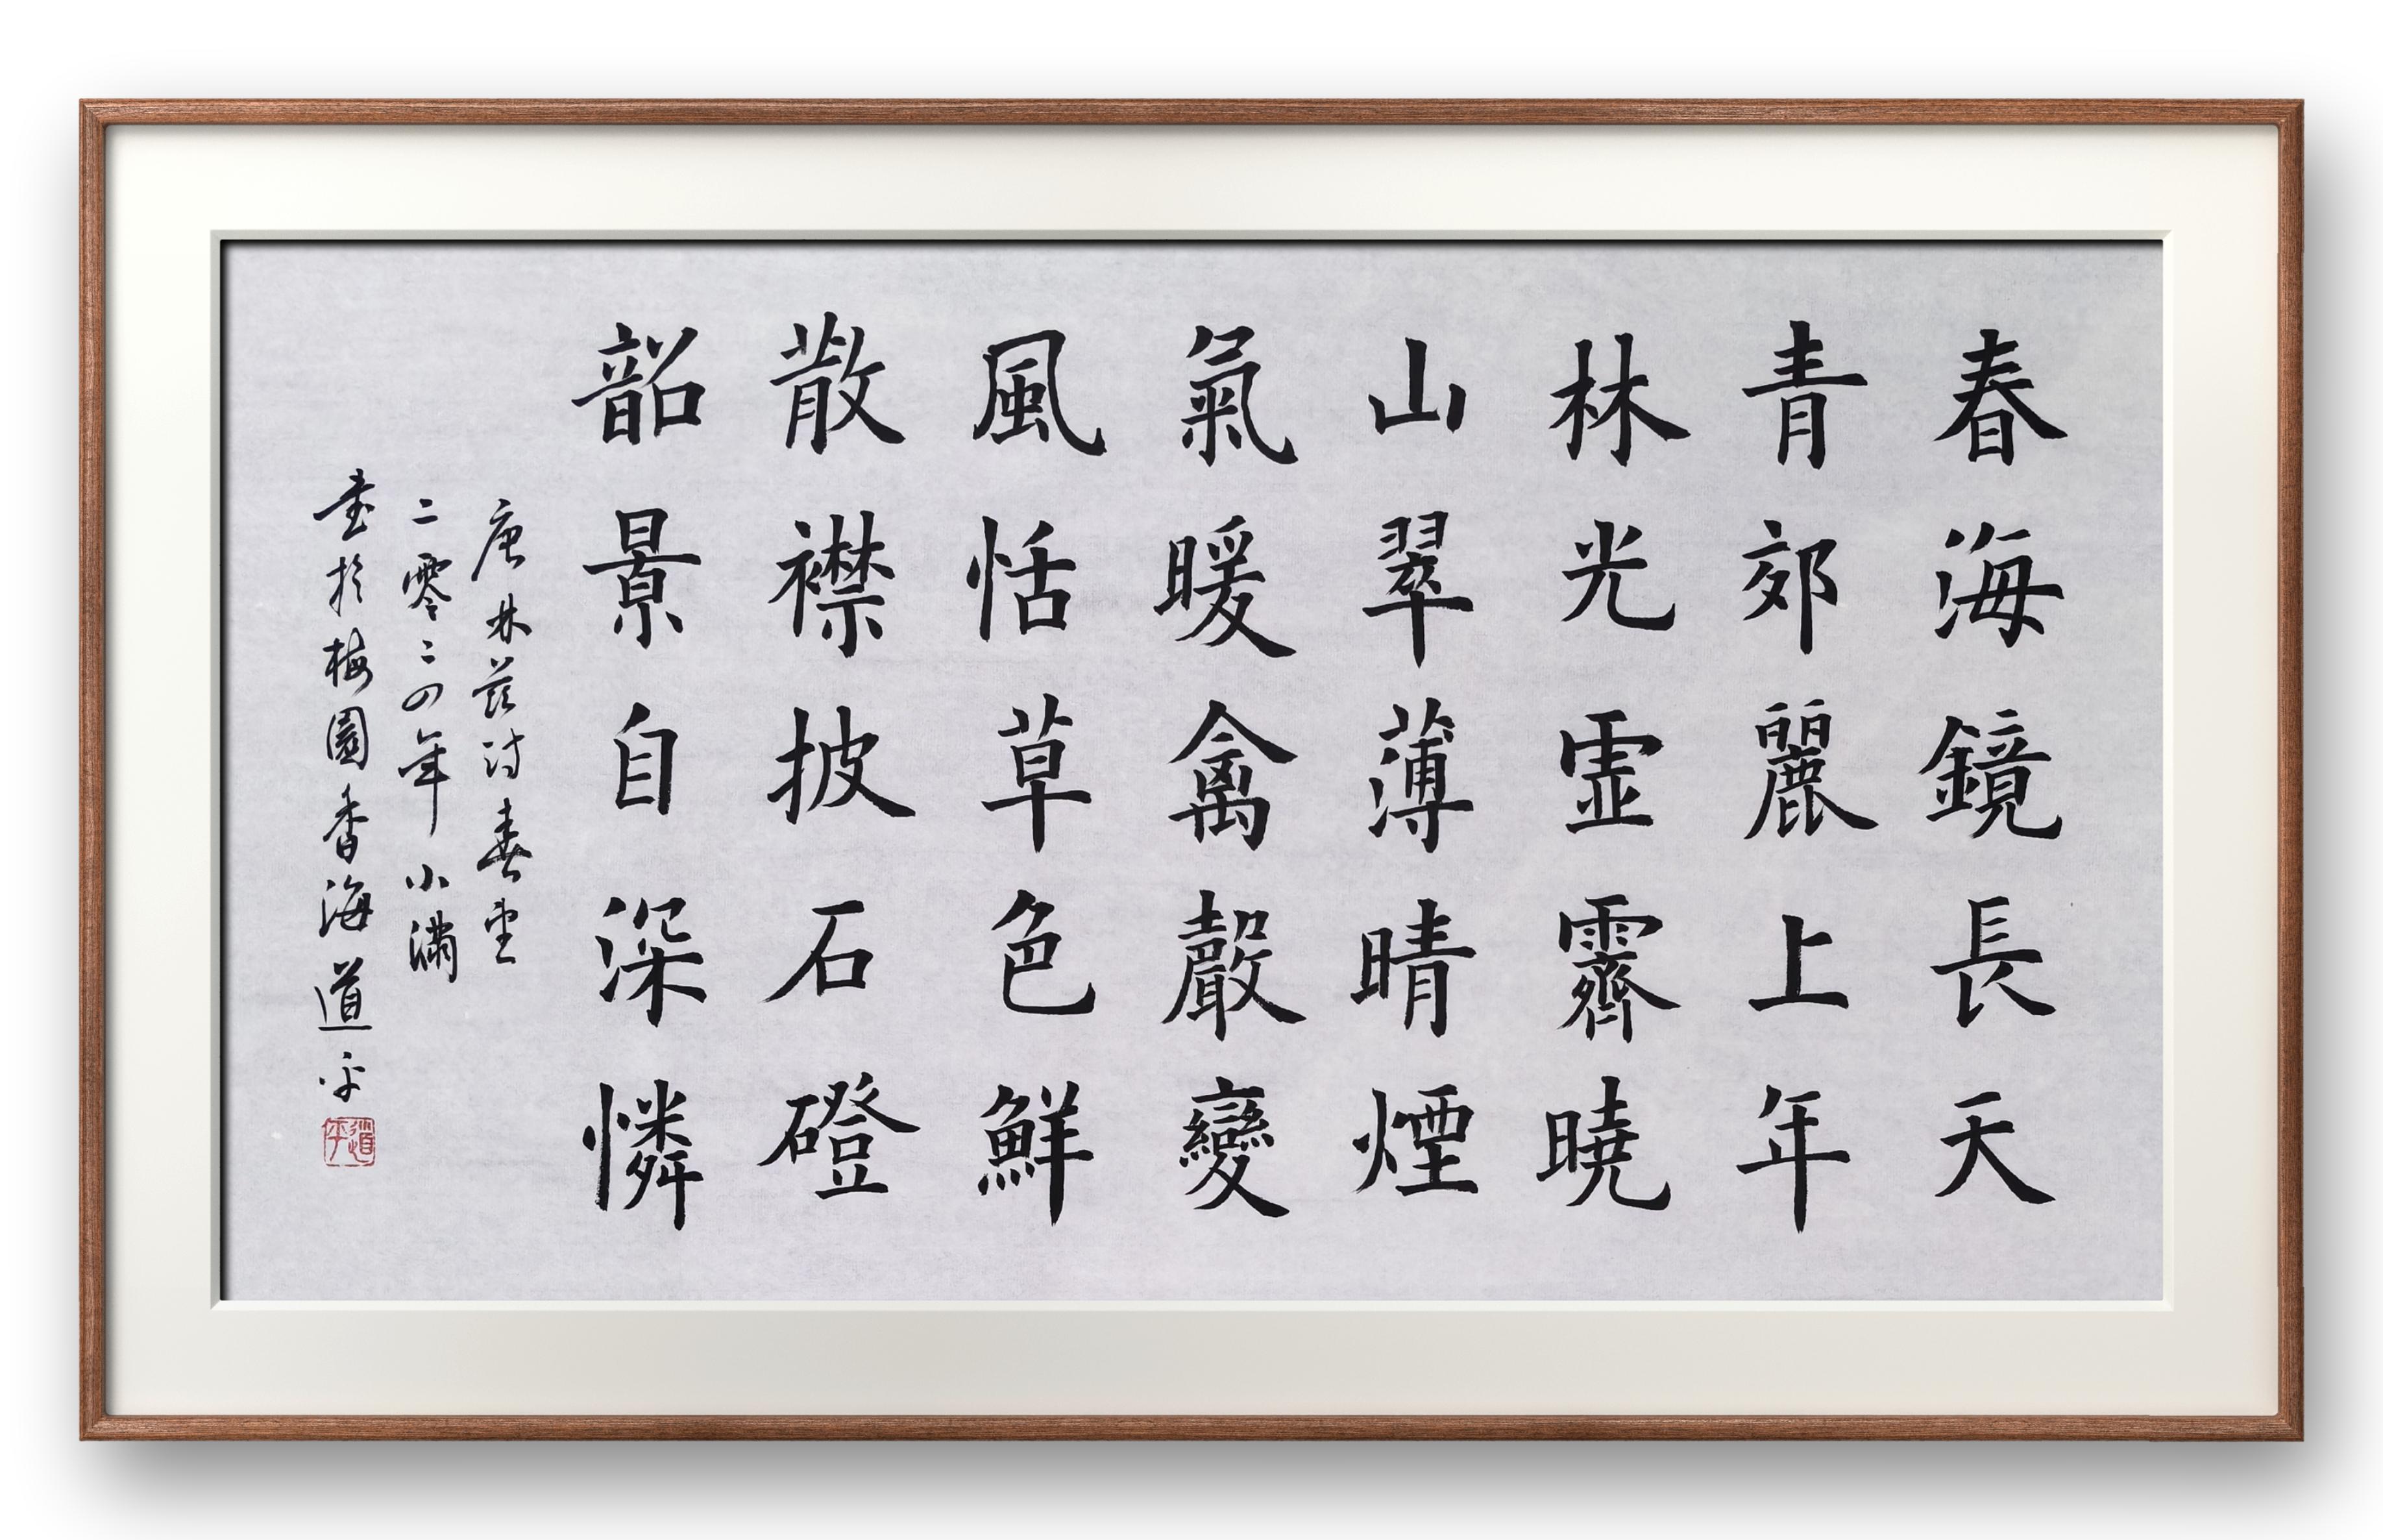 春海鏡長天
青郊麗上年
林光虛霽曉
山翠薄晴煙
氣暖禽聲變
風恬草色鮮
散襟披石磴
韶景自深憐
唐林慈诗春望
二零二四年小滿
書於梅園香海道平
道平